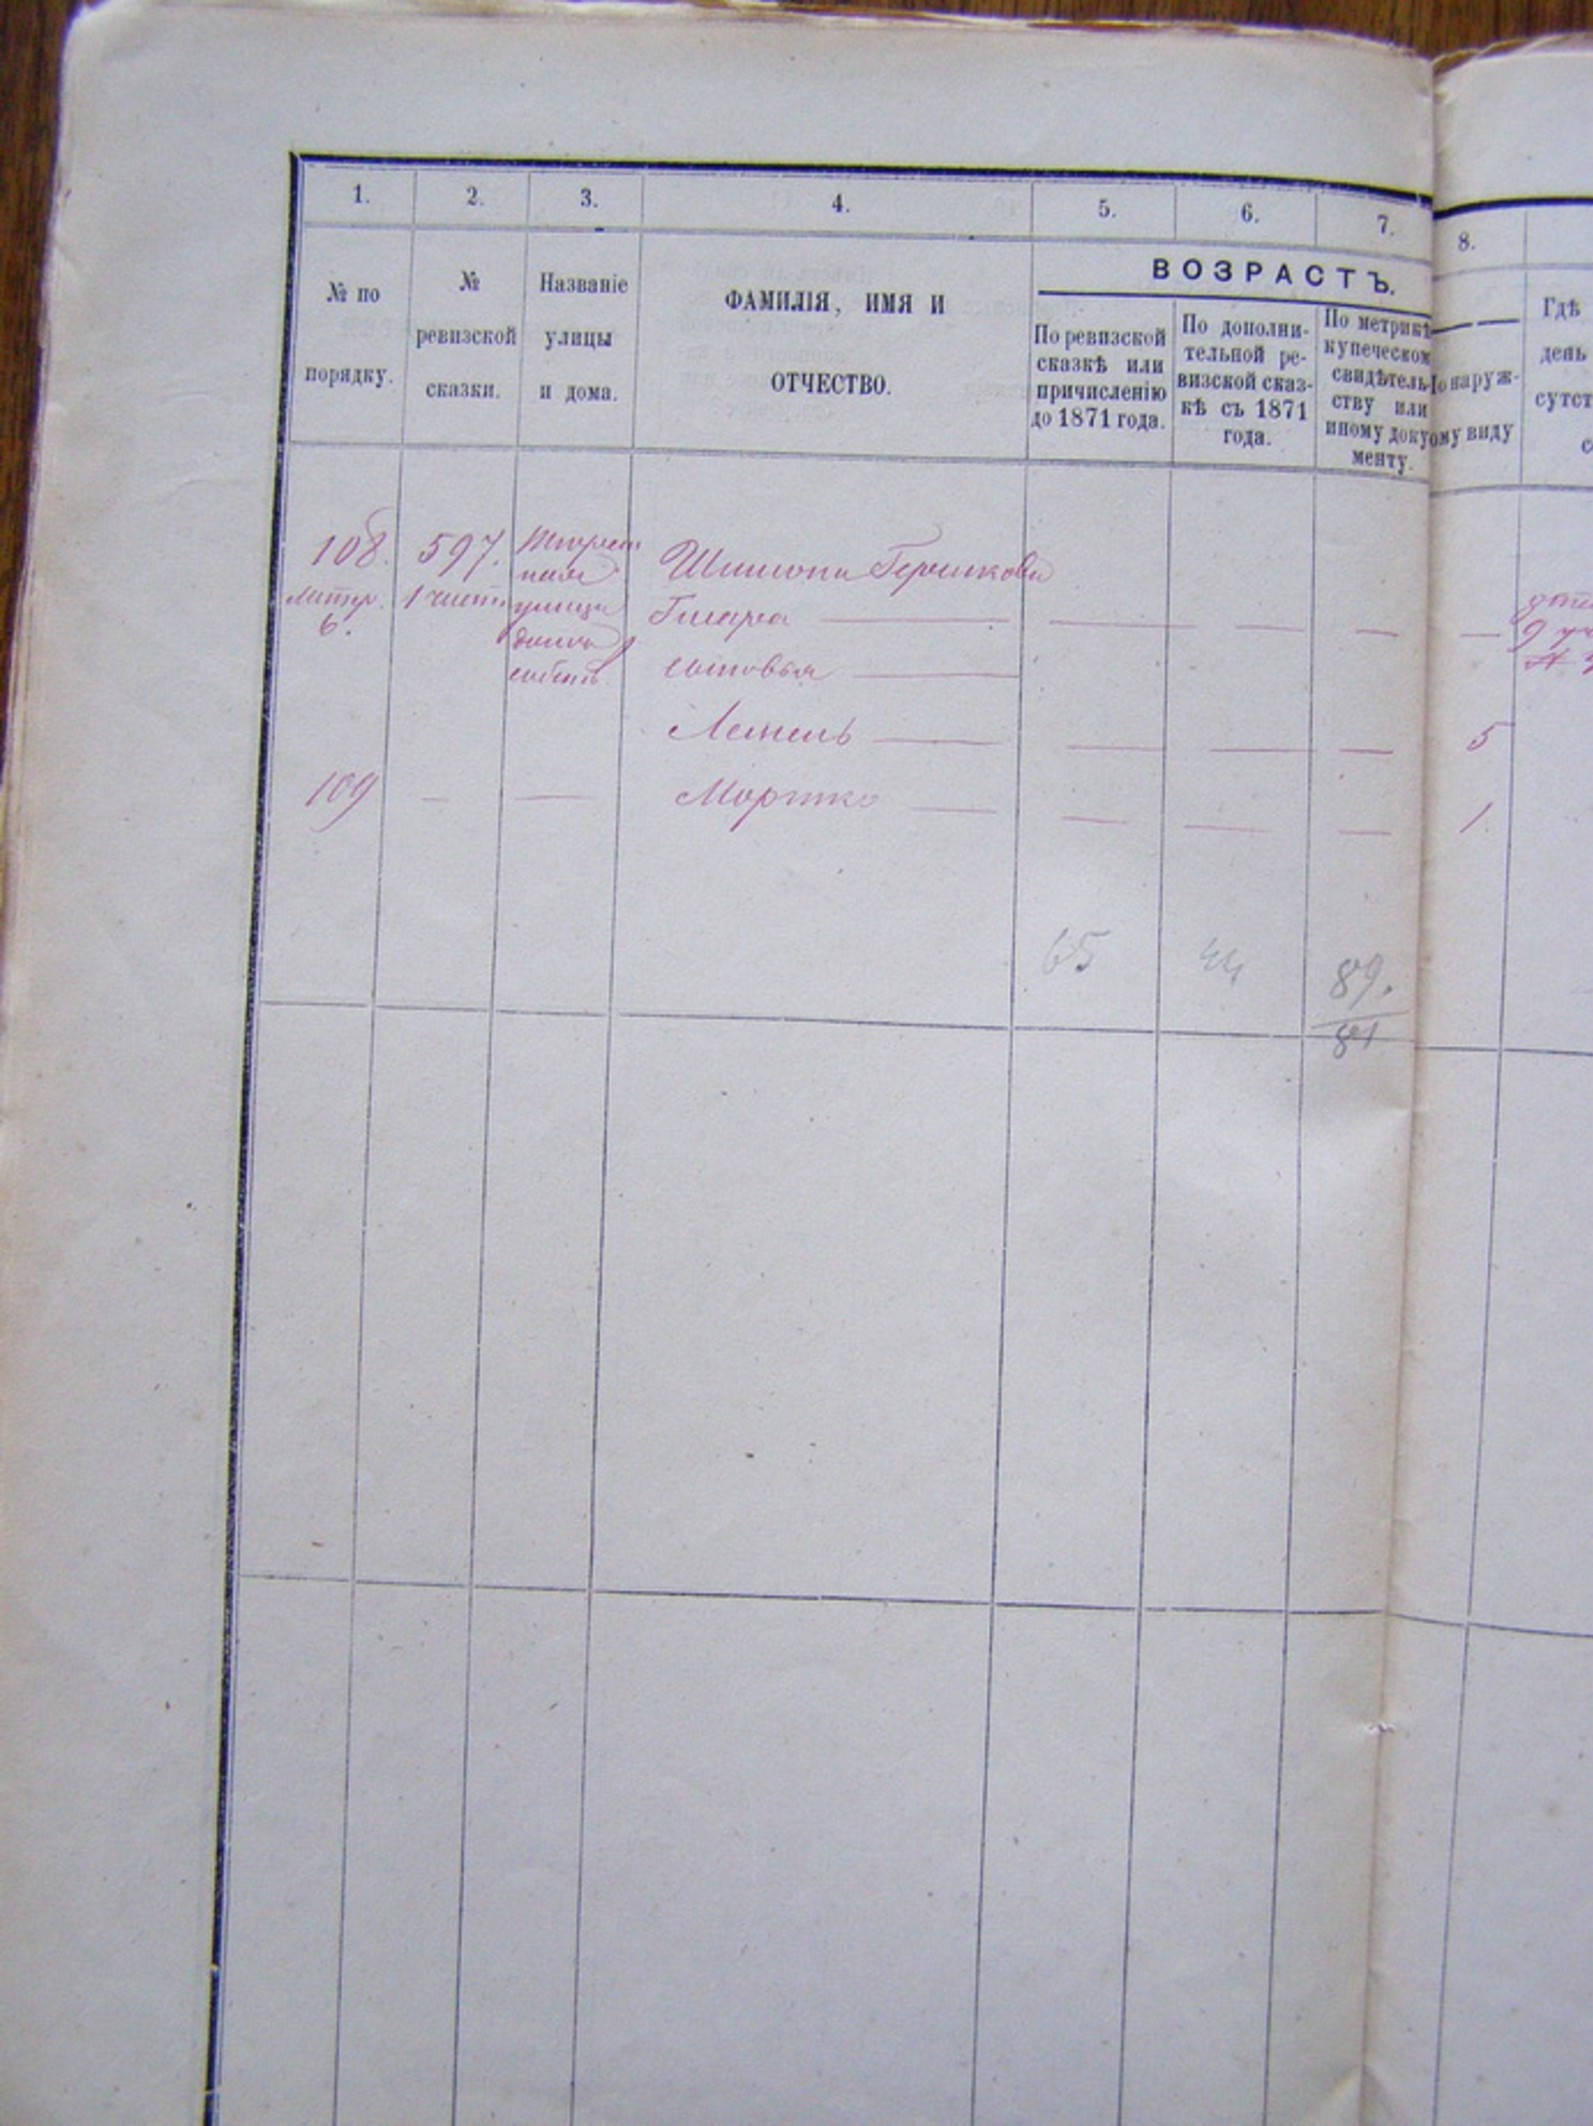 1. 2. 3. 4. 5. 6. 7. 8.
№ по
порядку.
№
ревизской
сказки.
Названіе
улицы
и дома.
ФАМИЛІЯ, ИМЯ И
ОТЧЕСТВО.
ВОЗРАСТЪ.
По ревизской
сказкѣ или
причисленію
до 1871 года.
По дополни-
тельной ре-
визской сказ-
кѣ съ 1871
года.
По метрикѣ
купеческом
свидѣтель-
ству или
иному доку
менту.
По наруж-
ому виду
Гдѣ
день
сутст
108. 597. Шимона Гершкова
литр. 1 част. улица
б.
сыновья
Лейтель 5
109 — — Мортко — — — — 1.
65 44 89.
81